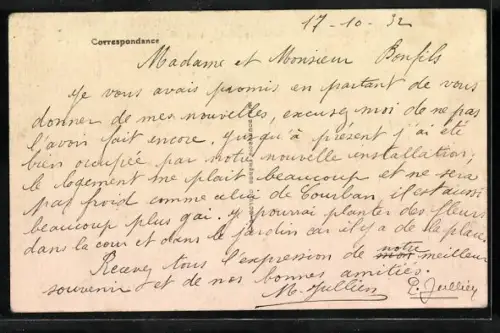 17-10-32
Correspondance
Madame et Monsieur Bonfils
Je vous avais promis en partant de vous
donner de mes nouvelles, excusez moi de ne pas
l'avoir fait encore. Jusqu'à présent j'ai été
bien occupée par notre nouvelle installation,
le logement me plait beaucoup et ne sera
pas froid comme celui de Tourban, il est aussi
beaucoup plus gai. Je pourrai planter des fleurs
dans la cour et dans le jardin car il y a de la place.
Recevez tous l'expression de notre meilleur
souvenir et de nos bonnes amitiés.
M. Jullien E. Jullien